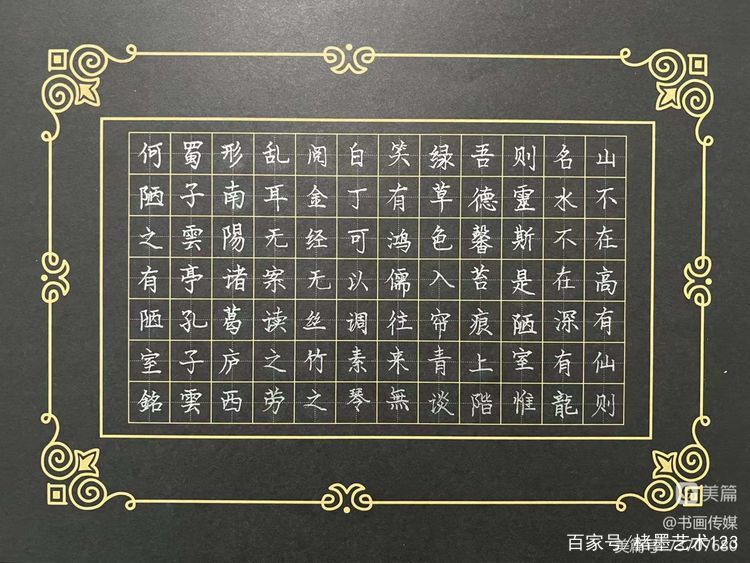 山不在高有仙则
名水不在深有龍
则靈斯是陋室惟
吾德馨苔痕上階
绿草色入帘青谈
笑有鸿儒往来無
白丁可以调素琴
阅金经无丝竹之
乱耳无案读之劳
形南陽诸葛庐西
蜀子雲亭孔子雲
何陋之有陋室銘
美篇
@书画传媒
百家号/楮墨艺术123